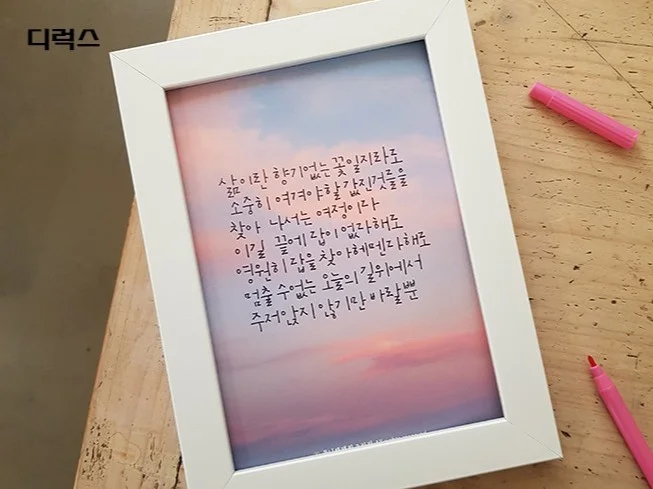 디럭스
삶이란 향기없는 꽃일지라도
소중히 여겨야할 값진것들을
찾아 나서는 여정이라
이길 끝에 답이 없다해도
영원히 답을 찾아헤멘다해도
멈출 수없는 오늘의 길위에서
주저앉지 않기만 바랄뿐